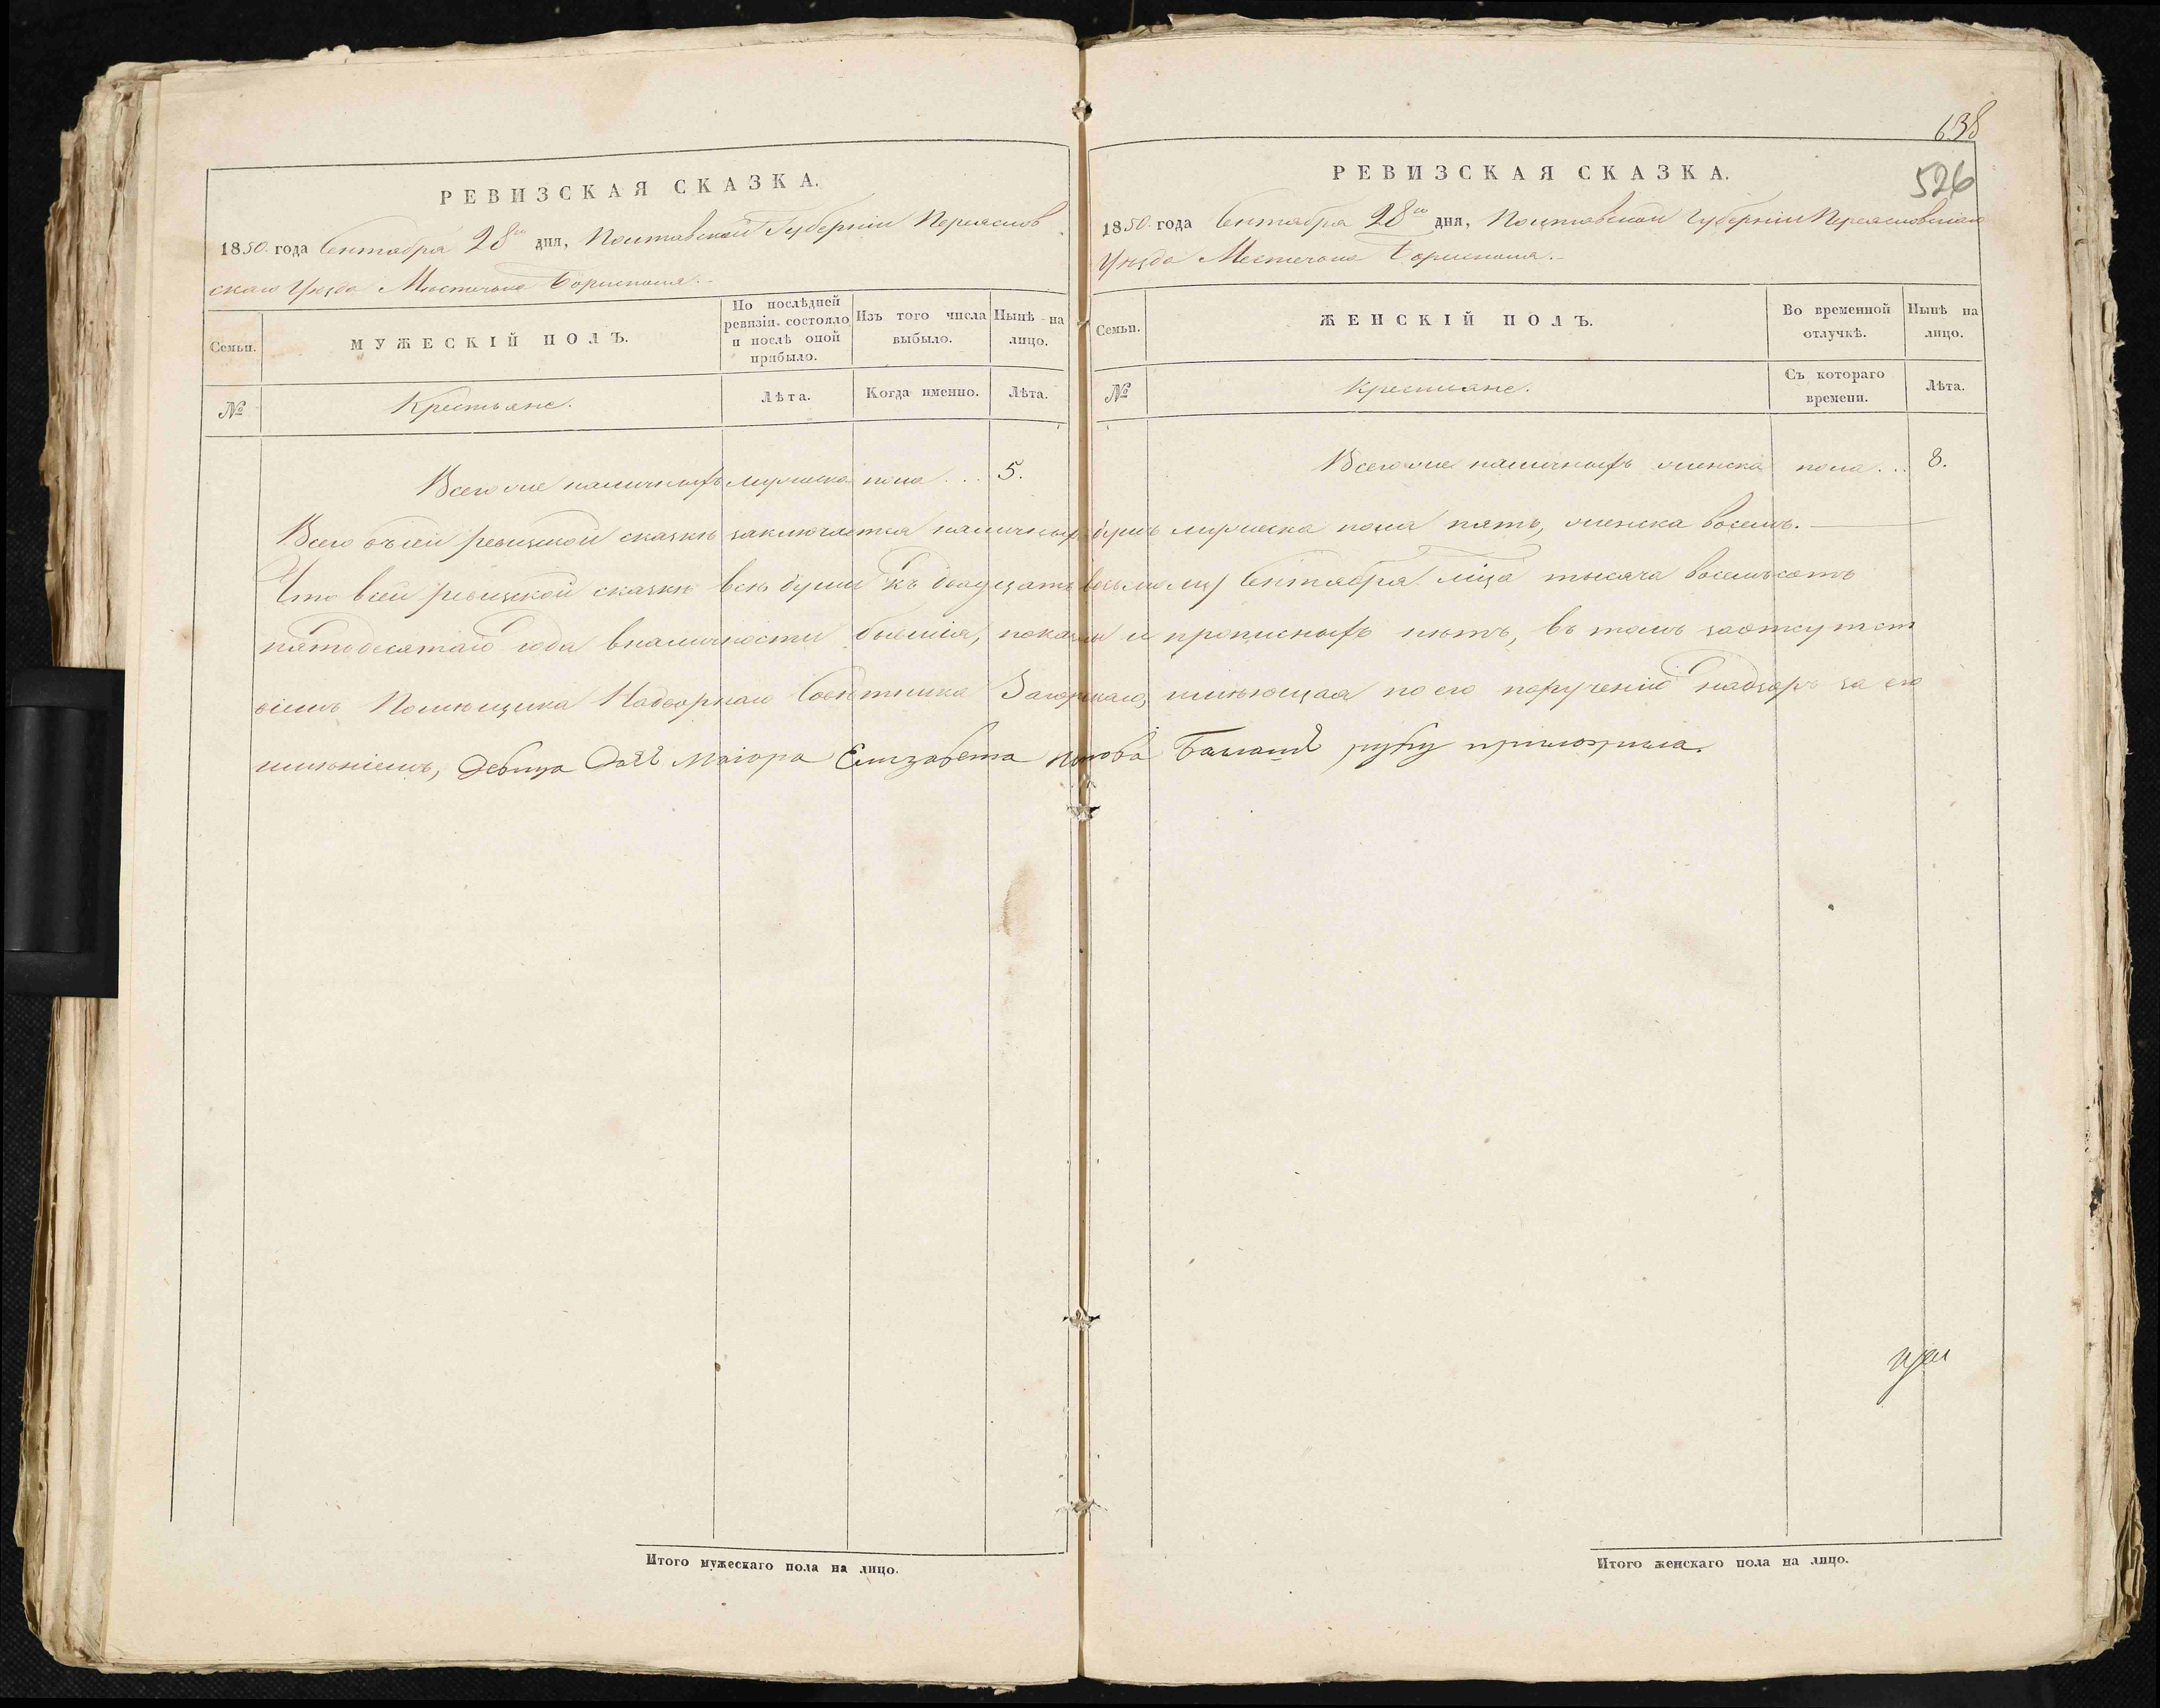 638
526
РЕВИЗСКАЯ СКАЗКА.
1850 года Сентября 28го дня, Полтавской Губерніи Переяслов
скаго Уѣзда Мѣстечка Борисполя.
Семьи.
МУЖЕСКІЙ ПОЛЪ.
По послѣдней ревизіи состояло и послѣ оной прибыло.
Изъ того числа выбыло.
Нынѣ на лицо.
№
Крестьяне.
Лѣта.
Когда именно.
Лѣта.
РЕВИЗСКАЯ СКАЗКА.
1850 года Сентября 28го дня, Полтавской Губерніи Переясловскаго
Уѣзда Местечка Борисполя.
Семьи.
ЖЕНСКІЙ ПОЛЪ.
Во временной отлучкѣ.
Нынѣ на лицо.
№
Крестьяне.
Съ котораго времени.
Лѣта.
Всего же наличныхъ мужеска пола . . . 5.
Всего же наличныхъ женска пола . . . 8.
Всего въ сей ревизской сказкѣ заключается наличныхъ душъ мужеска пола пять, женска восемь.
Что всей ревизской сказкѣ всѣ души къ двадцать восьмому Сентября мца тысяча восемьсотъ
пятьдесятаго года вналичности бывшія, показаны и прописныхъ нѣтъ, въ томъ заотсутст
віемъ Помѣщика Надворнаго Совѣтника Загорскаго, имѣющая по его порученію надзоръ за его
имѣніемъ, Девица Дочь Маіора Елизавета Балаш руку приложила.
Итого мужескаго пола на лицо.
Итого женскаго пола на лицо.